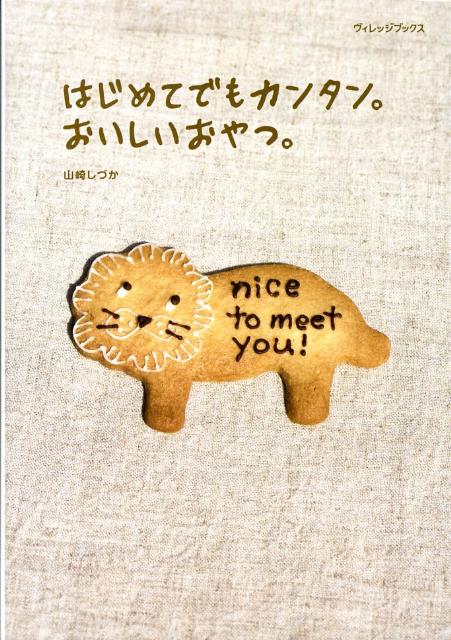 ヴィレッジブックス
はじめてでもカンタン。
おいしいおやつ。
山崎しづか
nice
to meet
you!